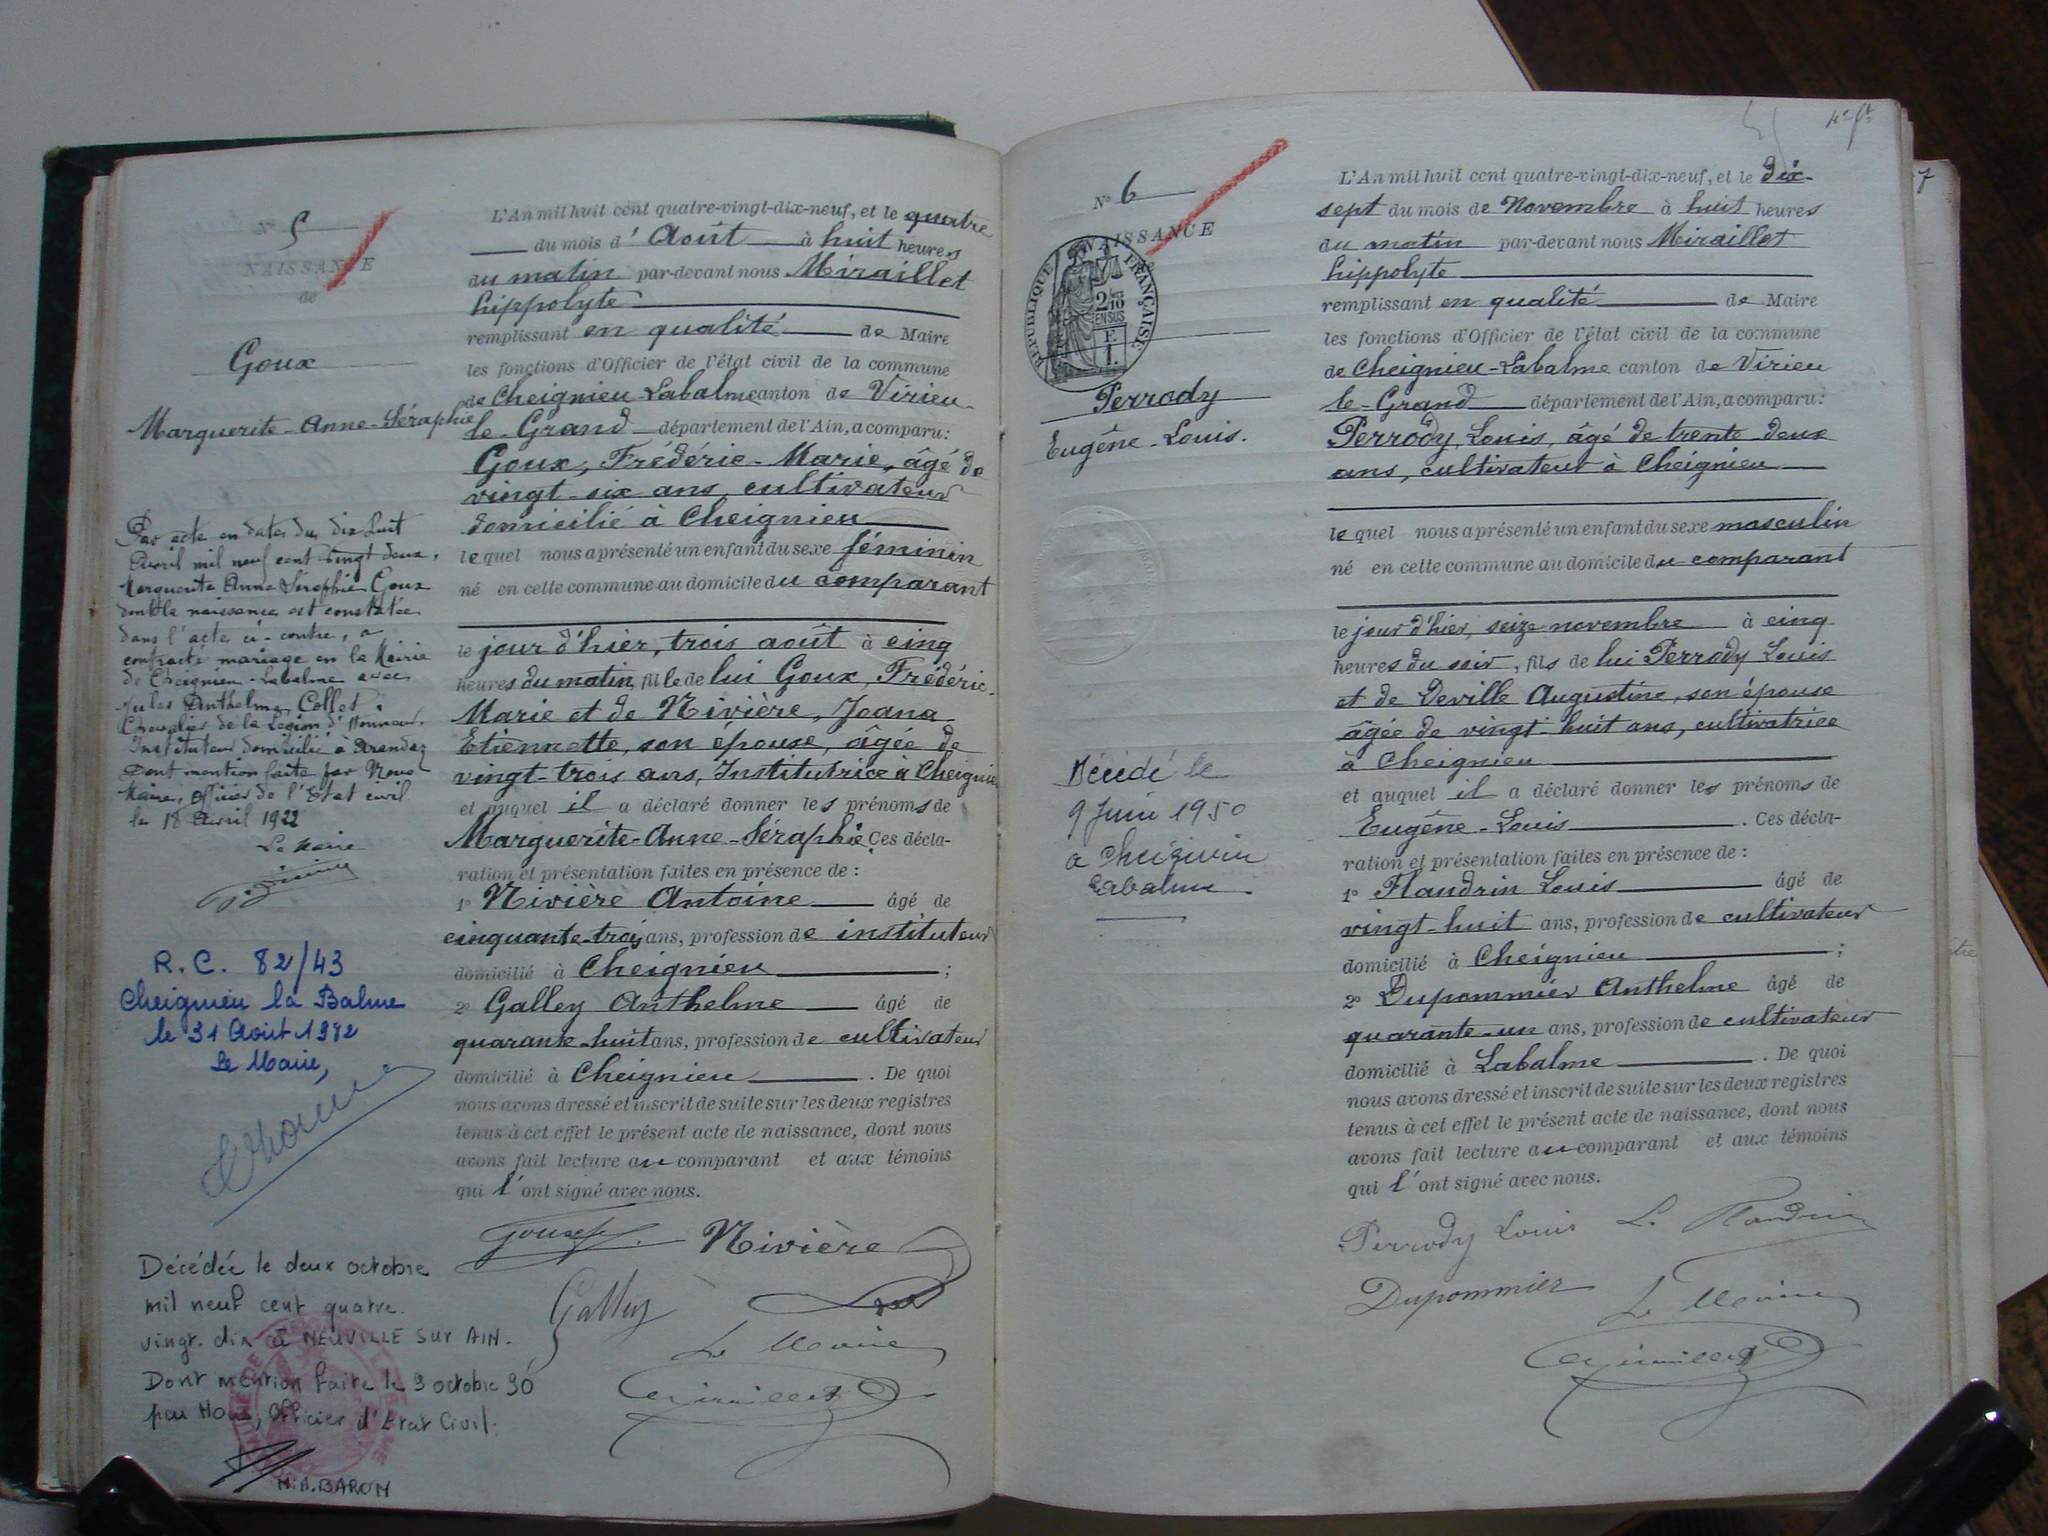 N° 5
NAISSANCE
de
Goux
Marguerite-Anne-Séraphie
Par acte en date du dix huit
Avril mil neuf cent vingt deux,
Marguerite Anne Séraphie Goux
dont la naissance est constatée
dans l'acte ci-contre, a
contracté mariage en la Mairie
de Cheignieu-Labalme avec
Jules Anthelme Collet,
Chevalier de la Légion d'Honneur,
Instituteur domicilié à Arandas
Dont mention faite par Nous
Maire, Officier de l'Etat civil
le 18 Avril 1922
Le Maire
R.C. 82/43
Cheignieu la Balme
le 31 Août 1972
Le Maire,
Décédée le deux octobre
mil neuf cent quatre.
vingt. dix à NEUVILLE SUR AIN.
Dont mention faite le 3 octobre 90
par Nous, Officier d'Etat Civil.
M.A. BARON
L'An mil huit cent quatre-vingt-dix-neuf, et le quatre
du mois d' Août à huit heures
du matin par-devant nous Miraillet
hippolyte
remplissant en qualité de Maire
les fonctions d'Officier de l'état civil de la commune
de Cheignieu-Labalme canton de Virieu
le-Grand département de l'Ain, a comparu:
Goux, Frédéric-Marie, âgé de
vingt-six ans, cultivateur
domicilié à Cheignieu
le quel nous a présenté un enfant du sexe féminin
né en cette commune au domicile du comparant
le jour d'hier, trois août à cinq
heures du matin, fille de lui Goux, Frédéric-
Marie et de Nivière, Joana
Etiennette, son épouse, âgée de
vingt-trois ans, Institutrice à Cheignieu
et auquel il a déclaré donner les prénoms de
Marguerite-Anne-Séraphie. Ces décla-
ration et présentation faites en présence de :
1° Nivière Antoine âgé de
cinquante-trois ans, profession de instituteur
domicilié à Cheignieu ;
2° Galley Anthelme âgé de
quarante-huit ans, profession de cultivateur
domicilié à Cheignieu . De quoi
nous avons dressé et inscrit de suite sur les deux registres
tenus à cet effet le présent acte de naissance, dont nous
avons fait lecture au comparant et aux témoins
qui l'ont signé avec nous.
Nivière
Galley
Le Maire
Miraillet
4e ft
N° 6
NAISSANCE
RÉPUBLIQUE FRANÇAISE
2/10
EN SUS
Perrody
Eugêne-Louis.
Décédé le
9 Juin 1950
a Cheignieu
Labalme.
L'An mil huit cent quatre-vingt-dix-neuf, et le dix-
sept du mois de Novembre à huit heures
du matin par-devant nous Miraillet
hippolyte
remplissant en qualité de Maire
les fonctions d'Officier de l'état civil de la commune
de Cheignieu-Labalme canton de Virieu
le-Grand département de l'Ain, a comparu:
Perrody Louis, âgé de trente-deux
ans, cultivateur à Cheignieu
le quel nous a présenté un enfant du sexe masculin
né en cette commune au domicile du comparant
le jour d'hier, seize novembre à cinq
heures du soir, fils de lui Perrody Louis
et de Deville Augustine, son épouse
âgée de vingt-huit ans, cultivatrice
à Cheignieu
et auquel il a déclaré donner les prénoms de
Eugêne-Louis . Ces décla-
ration et présentation faites en présence de :
1° Flandrin Louis âgé de
vingt-huit ans, profession de cultivateur
domicilié à Cheignieu ;
2° Dupommier Anthelme âgé de
quarante-un ans, profession de cultivateur
domicilié à Labalme . De quoi
nous avons dressé et inscrit de suite sur les deux registres
tenus à cet effet le présent acte de naissance, dont nous
avons fait lecture au comparant et aux témoins
qui l'ont signé avec nous.
Perrody Louis L. Flandrin
Dupommier
Le Maire
Miraillet
7